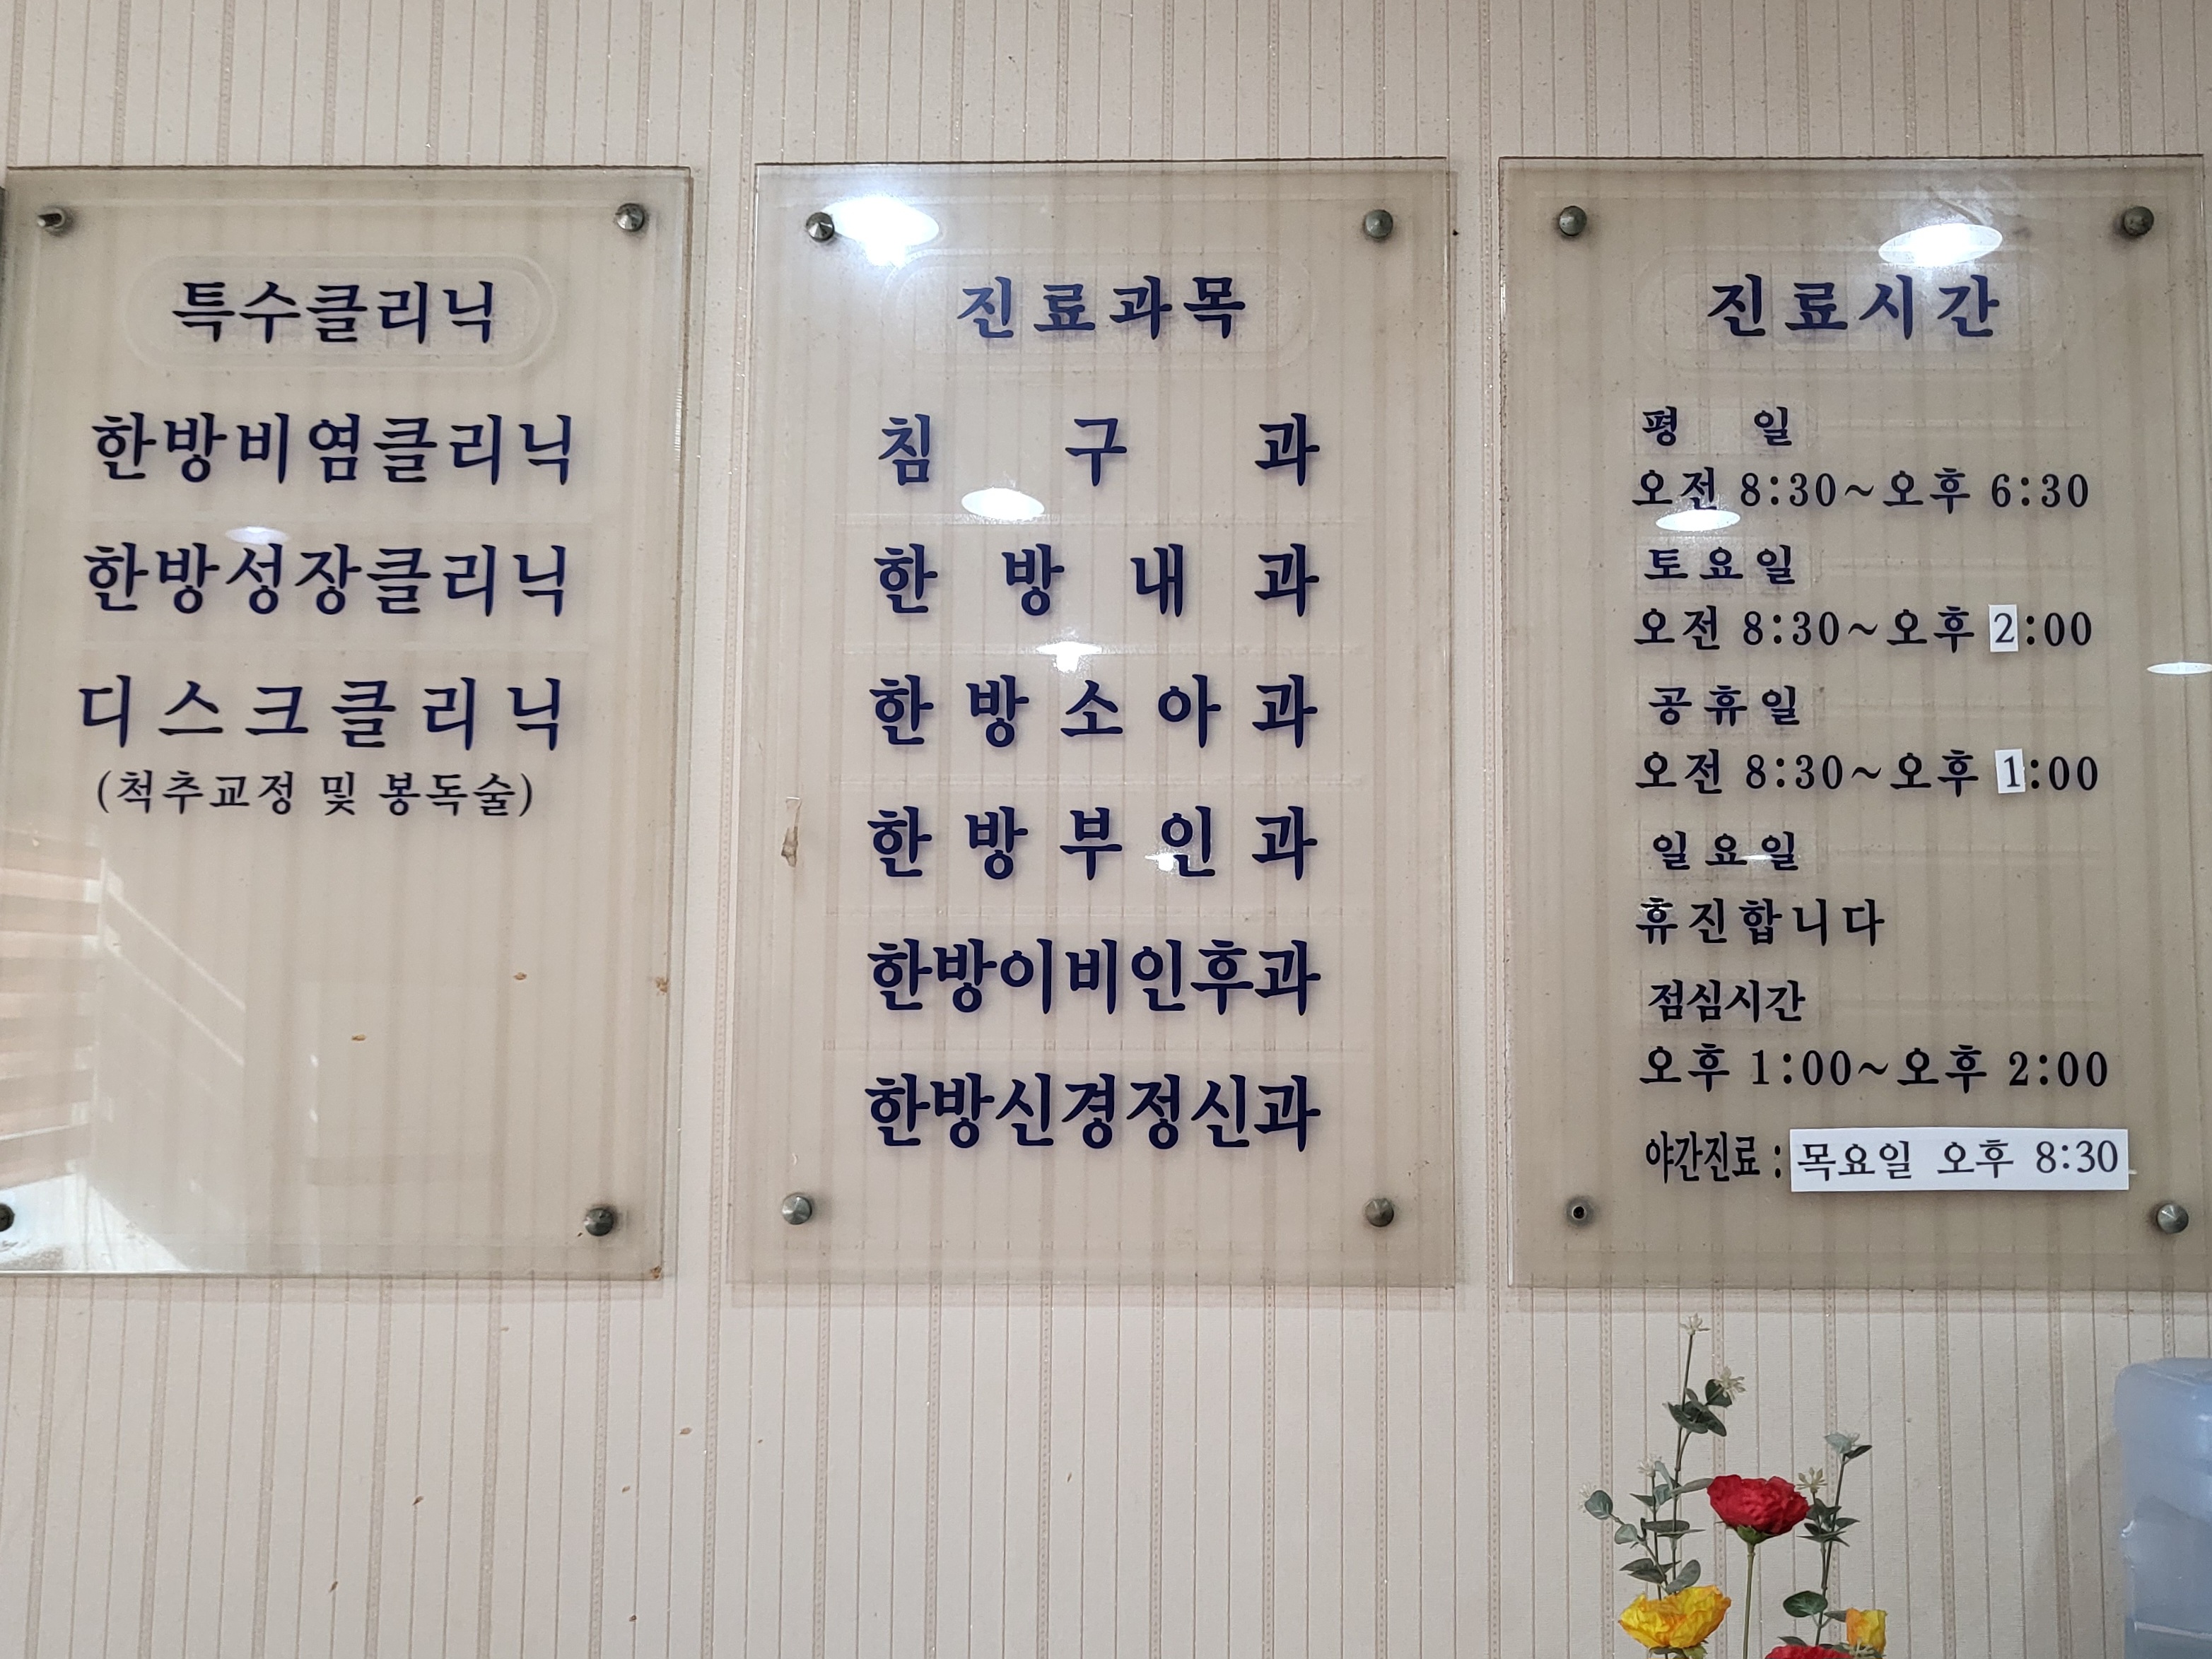 특수클리닉
한방비염클리닉
한방성장클리닉
디스크클리닉
(척추교정 및 봉독술)
진료과목
침구과
한방내과
한방소아과
한방부인과
한방이비인후과
한방신경정신과
진료시간
평일
오전 8:30~오후 6:30
토요일
오전 8:30~오후 2:00
공휴일
오전 8:30~오후 1:00
일요일
휴진합니다
점심시간
오후 1:00~오후 2:00
야간진료 : 목요일 오후 8:30